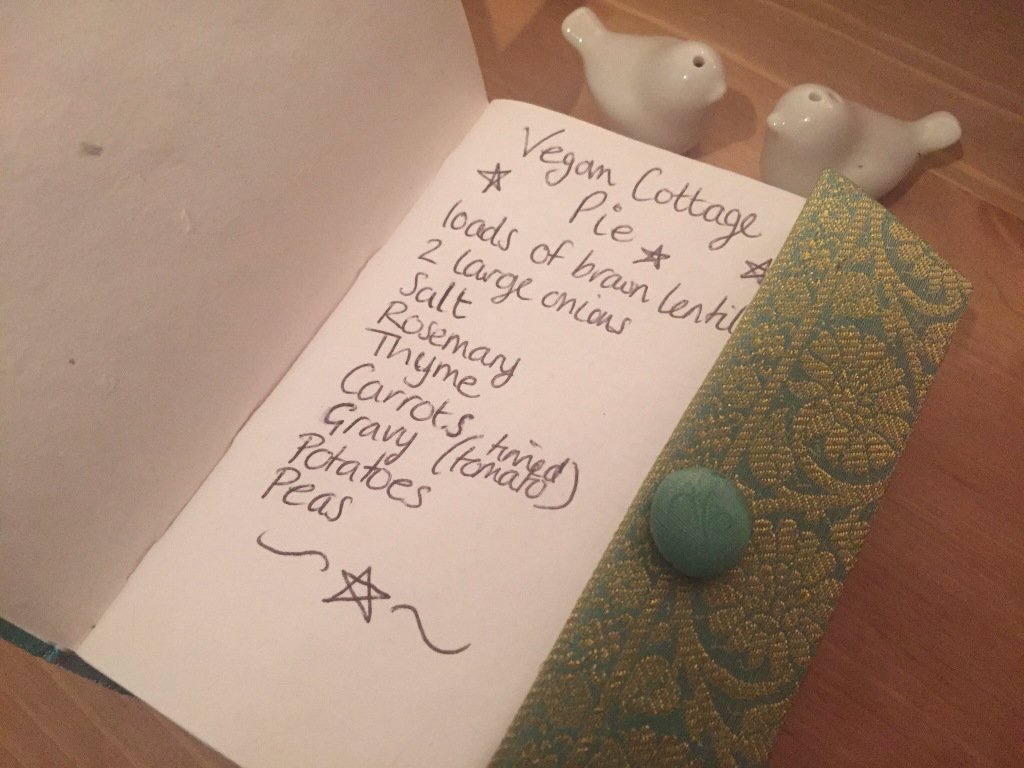 Vegan Cottage
Pie
loads of brown lentil
2 large onions
Salt
Rosemary
Thyme
Carrots
Gravy (tinned
tomato)
Potatoes
Peas